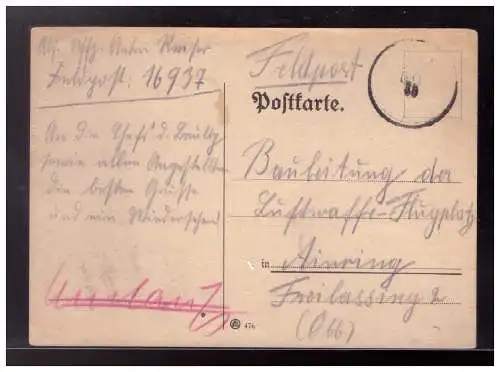 Abs. Schtz. Anton Kaiser
Feldpost: 16937
An die Chefs d. Baultg
sowie allen Angestellten
die besten Grüsse
und ein Wiedersehen!
Umlauf
Feldpost
Postkarte.
Bauleitung der
Luftwaffe-Flugplatz
in Ainring
Freilassing 2
(Obb)
476